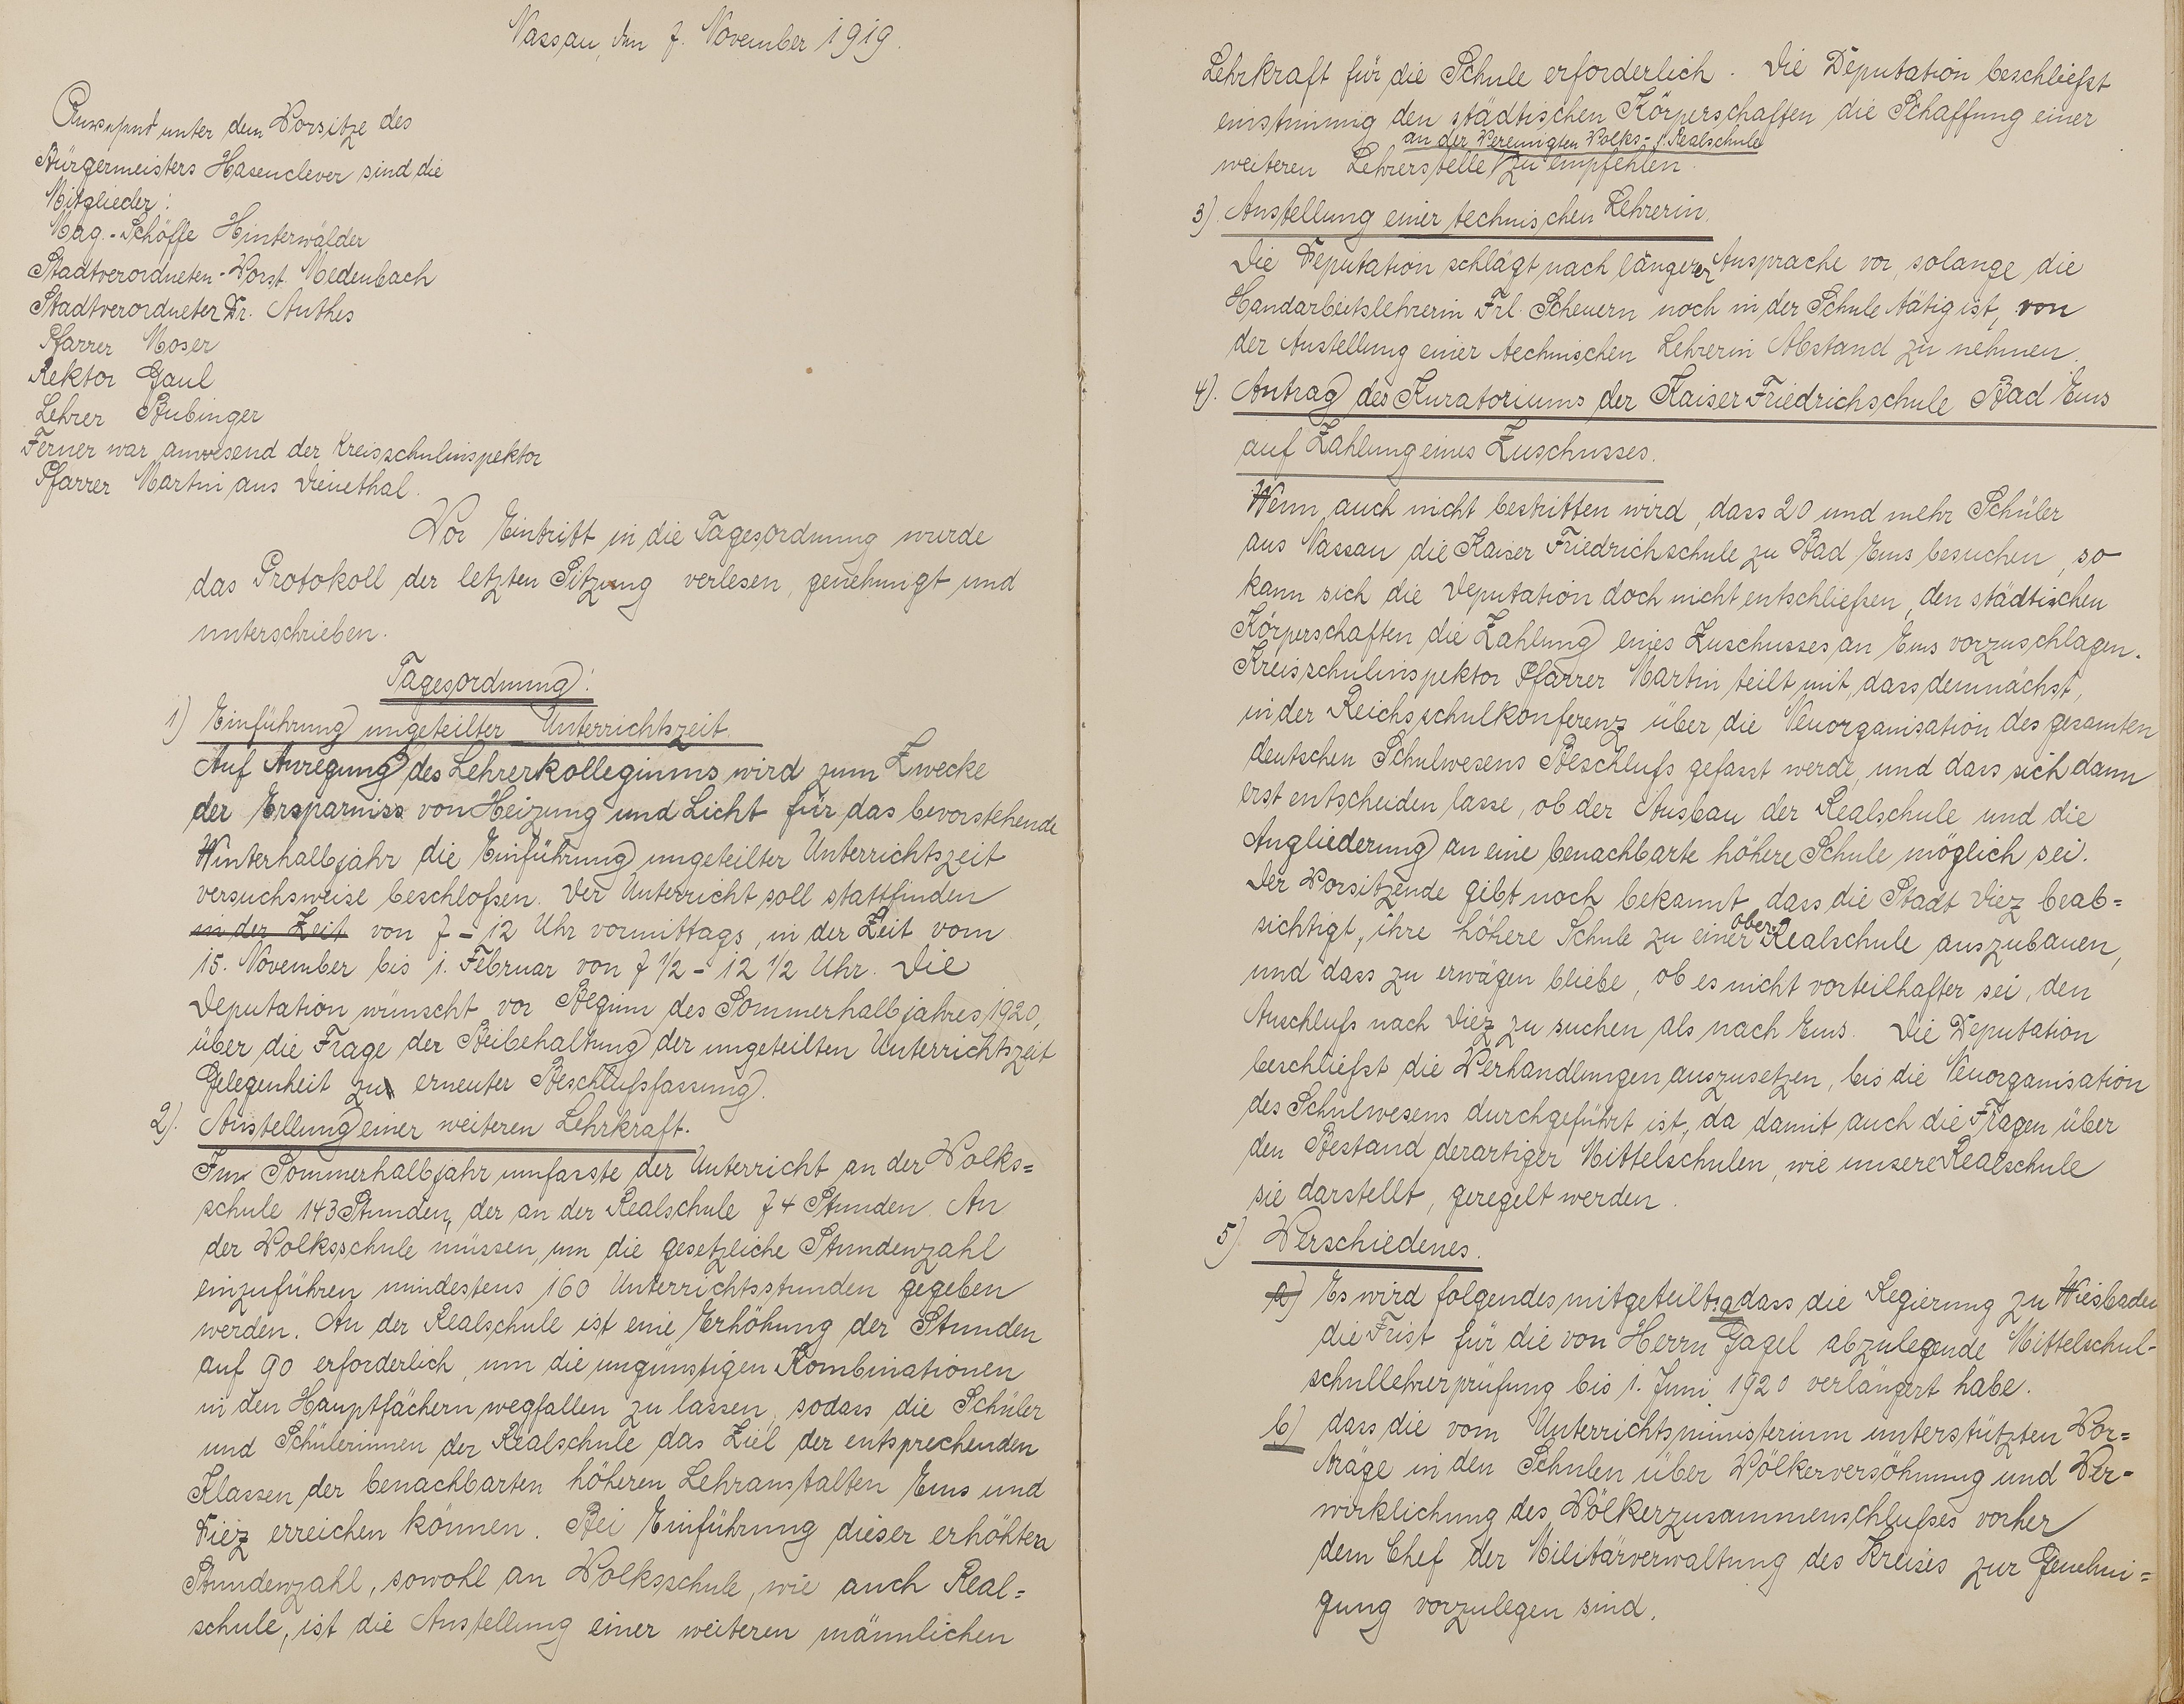 Nassau, den 7. November 1919.
Anwesend unter dem Vorsitze des
Bürgermeisters Hasenclever sind die
Mitglieder:
Mag.-Schöffe Hinterwälder
Stadtverordneten-Vorst. Medenbach
Stadtverordneter Dr. Anthes
Pfarrer Moser
Rektor Gaul
Lehrer Bubinger
Ferner war anwesend der Kreisschulinspektor
Pfarrer Martin aus Dienethal.
Vor Eintritt in die Tagesordnung wurde
das Protokoll der letzten Sitzung verlesen, genehmigt und
unterschrieben.
Tagesordnung:
1) Einführung ungeteilter Unterrichtszeit.
Auf Anregung des Lehrerkollegiums wird zum Zwecke
der Ersparniss von Heizung und Licht für das bevorstehende
Winterhalbjahr die Einführung ungeteilter Unterrichtszeit
versuchsweise beschloßen. Der Unterricht soll stattfinden
in der Zeit von 7 - 12 Uhr vormittags, in der Zeit vom
15. November bis 1. Februar von 7 1/2 - 12 1/2 Uhr. Die
Deputation wünscht vor Beginn des Sommerhalbjahres 1920,
über die Frage der Beibehaltung der ungeteilten Unterrichtszeit
Gelegenheit zu erneuter Beschlußfassung.
2). Anstellung einer weiteren Lehrkraft.
Im Sommerhalbjahr umfasste der Unterricht an der Volks=
schule 143 Stunden, der an der Realschule 74 Stunden. An
der Volksschule müssen, um die gesetzliche Stundenzahl
einzuführen mindestens 160 Unterrichtsstunden gegeben
werden. An der Realschule ist eine Erhöhung der Stunden
auf 90 erforderlich, um die ungünstigen Kombinationen
in den Hauptfächern wegfallen zu lassen, sodass die Schüler
und Schülerinnen der Realschule das Ziel der entsprechenden
Klassen der benachbarten höheren Lehranstalten Ems und
Diez erreichen können. Bei Einführung dieser erhöhten
Stundenzahl, sowohl an Volksschule, wie auch Real=
schule, ist die Anstellung einer weiteren männlichen
Lehrkraft für die Schule erforderlich. Die Deputation beschließt
einstimmig den städtischen Körperschaften die Schaffung einer
an der Vereinigten Volks- u. Realschule
weiteren Lehrerstelle zu empfehlen.
3). Anstellung einer technischen Lehrerin.
Die Deputation schlägt nach längerer Ansprache vor, solange die
Handarbeitslehrerin Frl. Scheuern noch in der Schule tätig ist, von
der Anstellung einer technischen Lehrerin Abstand zu nehmen.
4). Antrag des Kuratoriums der Kaiser Friedrichschule Bad Ems
auf Zahlung eines Zuschusses.
Wenn auch nicht bestritten wird, dass 20 und mehr Schüler
aus Nassau die Kaiser Friedrichschule zu Bad Ems besuchen, so
kann sich die Deputation doch nicht entschließen, den städtischen
Körperschaften die Zahlung eines Zuschusses an Ems vorzuschlagen.
Kreisschulinspektor Pfarrer Martin teilt mit, dass demnächst,
in der Reichsschulkonferenz über die Neuorganisation des gesamten
deutschen Schulwesens Beschluß gefasst werde, und dass sich dann
erst entscheiden lasse, ob der Ausbau der Realschule und die
Angliederung an eine benachbarte höhere Schule möglich sei.
Der Vorsitzende gibt noch bekannt, dass die Stadt Diez beab=
sichtigt, ihre höhere Schule zu einer Ober-Realschule auszubauen,
und dass zu erwägen bliebe, ob es nicht vorteilhafter sei, den
Anschluß nach Diez zu suchen als nach Ems. Die Deputation
beschließt die Verhandlungen auszusetzen, bis die Neuorganisation
des Schulwesens durchgeführt ist, da damit auch die Fragen über
den Bestand derartiger Mittelschulen, wie unsere Realschule
sie darstellt, geregelt werden.
5). Verschiedenes.
a) Es wird folgendes mitgeteilt: a dass die Regierung zu Wiesbaden
die Frist für die von Herrn Gagel abzulegende Mittelschul-
schullehrerprüfung bis 1. Juni 1920 verlängert habe.
b) dass die vom Unterrichtsministerium unterstützten Vor=
träge in den Schulen über Völkerversöhnung und Ver=
wirklichung des Völkerzusammenschlußes vorher
dem Chef der Militärverwaltung des Kreises zur Genehmi=
gung vorzulegen sind.